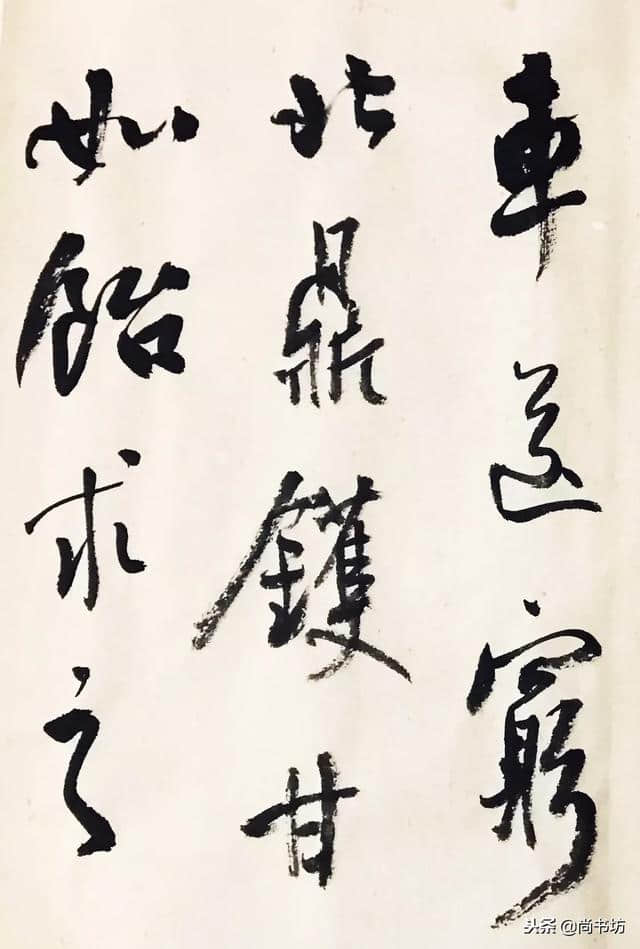 車送窮
北鼎鑊甘
如飴求之
头条 @尚书坊